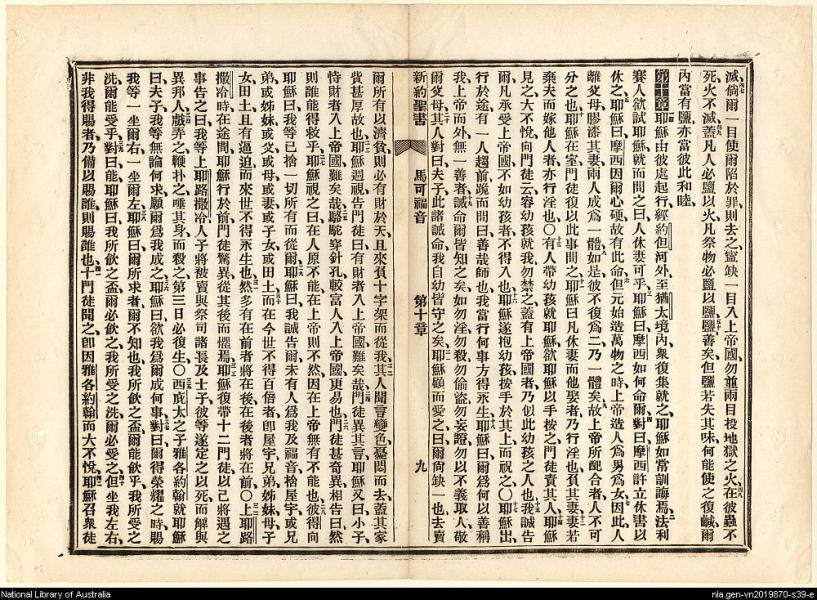 滅倘爾一目使爾陷於罪則去之寧缺一目入上帝國勿並兩目投地獄之火在彼蟲不
死火不滅蓋凡人必鹽以火凡祭物必鹽以鹽鹽善矣但鹽若失其味何能使之復鹹爾
內當有鹽亦當彼此和睦
第十章耶穌由彼處起行經約但河外至猶太境內衆復集就之耶穌如常訓誨焉法利
賽人欲試耶穌就而問之曰人休妻可乎耶穌曰摩西如何命爾對曰摩西許立休書以
休之耶穌曰摩西因爾心硬故有此命但元始造萬物之時上帝造人爲男爲女因此人
離父母膠漆其妻兩人成爲一體如是彼不復爲二乃一體矣故上帝所配合者人不可
分之也耶穌在室門徒復以此事問之耶穌曰凡休妻而他娶者乃行淫也負其妻妻若
棄夫而嫁他人者亦行淫也○有人帶幼孩就耶穌欲耶穌以手按之門徒責其人耶穌
見之大不悅向門徒云容幼孩就我勿禁之蓋有上帝國者乃似此幼孩之人也我誠告
爾凡承受上帝國不如幼孩者不得入也耶穌遂抱幼孩按手於其上而祝之○耶穌出
行於途有一人趨前跪而問曰善哉師也我當行何事方得永生耶穌曰爾爲何以善稱
我上帝而外無一善者誡命爾皆知之矣如勿淫勿殺勿偷盜勿妄證勿以不義取人敬
爾父母其人對曰夫子此諸誡命我自幼皆守之矣耶穌顧而愛之曰爾尙缺一也去賣
新約聖書 馬可福音 第十章 九
爾所有以濟貧則必有財於天且來負十字架而從我其人聞言變色憂悶而去蓋其家
貲甚厚故也耶穌遍視吿門徒曰有財者入上帝國難矣哉門徒異其言耶穌又曰小子
恃財者入上帝國難矣哉駱駝穿針孔較富人入上帝國更易也門徒甚奇異相告曰然
則誰能得救乎耶穌視之曰在人原不能在上帝則不然因在上帝無有不能也彼得向
耶穌曰我等已捨一切所有而從爾耶穌曰我誠告爾未有人爲我及福音捨屋宇或兄
弟或姊妹或父或母或妻或子女或田土而在今世不得百倍者卽屋宇兄弟姊妹母子
女田土且有逼迫而來世不得永生也然多有在前者將在後在後者將在前○上耶路
撒冷時在途間耶穌行於前門徒驚異從其後而懼焉耶穌復帶十二門徒以己將遇之
事告之曰我等上耶路撒冷人子將被賣與祭司諸長及士子彼等遂定之以死而解與
異邦人戲弄之鞭扑之唾其身而殺之第三日必復生○西庇太之子雅各約翰就耶穌
曰夫子我等無論何求願爾爲我成之耶穌曰欲我爲爾成何事對曰爾得榮耀之時賜
我等一坐爾右一坐爾左耶穌曰爾所求者爾不知也我所飮之盃爾能飮乎我所受之
洗爾能受乎對曰能耶穌曰我所飮之盃爾必飮之我所受之洗爾必受之但坐我左右
非我得賜者乃備以賜誰則賜誰也十門徒聞之卽因雅各約翰而大不悅耶穌召衆徒
National Library of Australia
nla.gen-vn2019870-s39-e